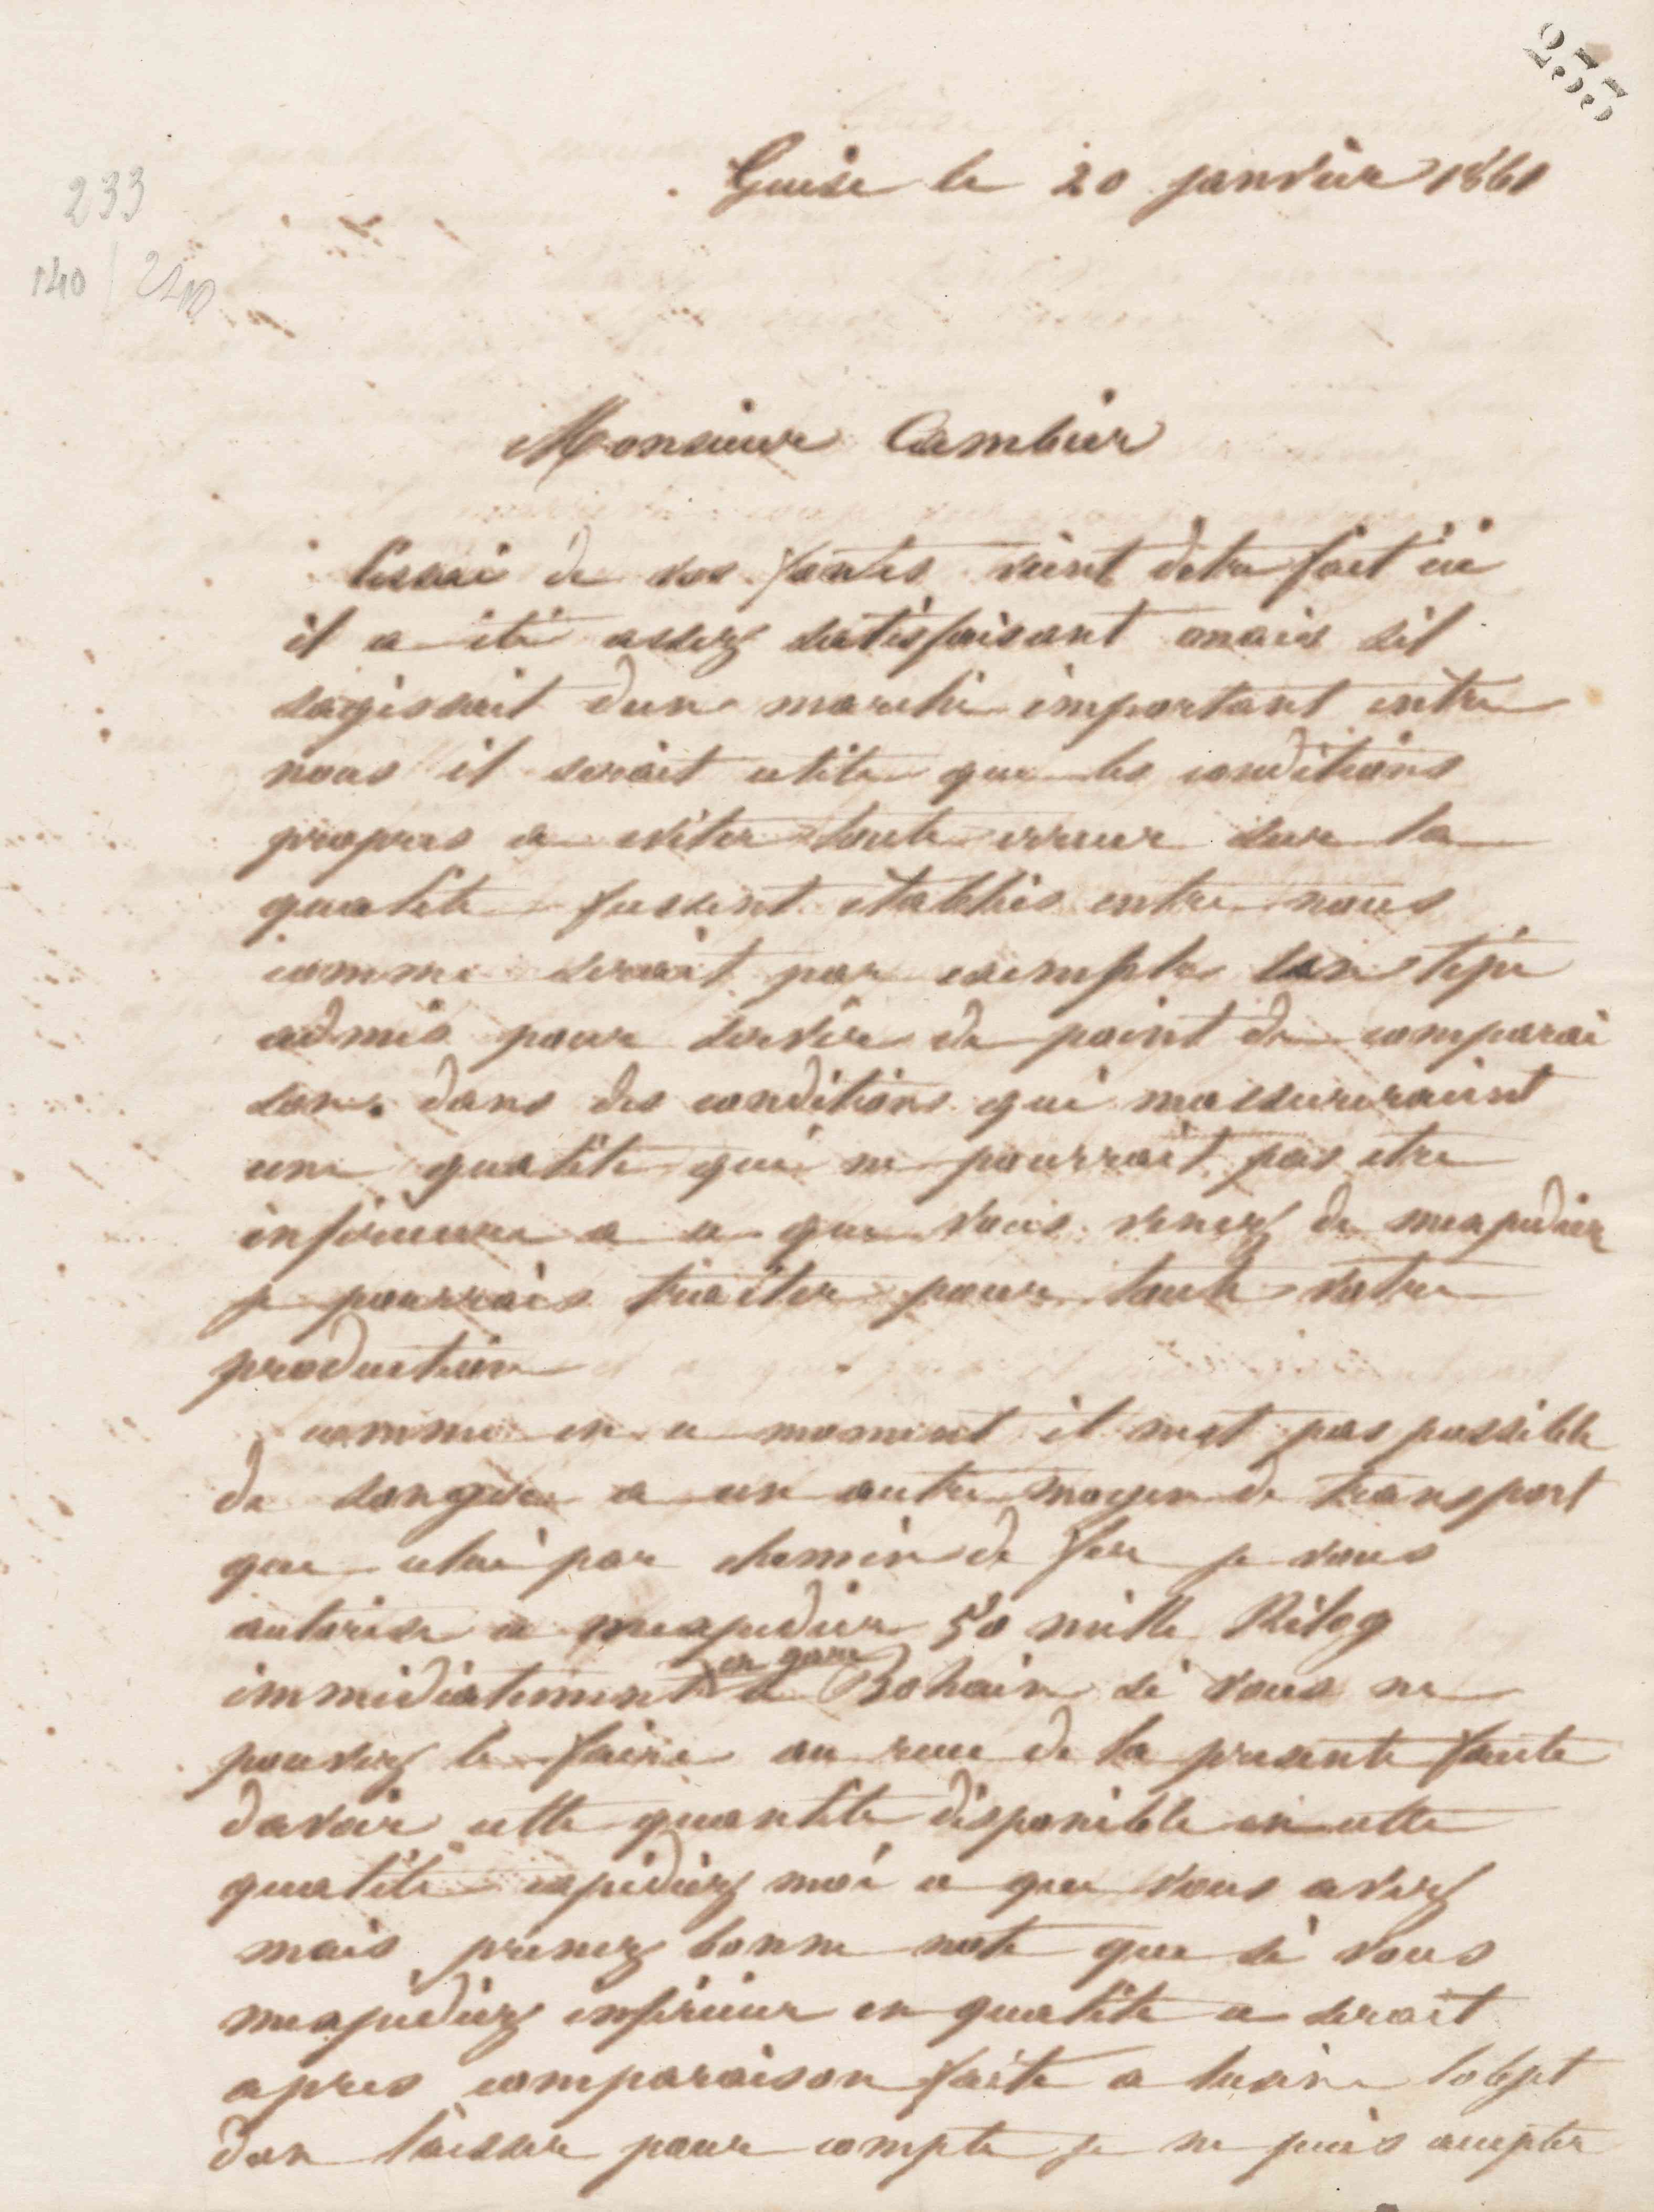 233
Guise le 20 janvier 1861
233
140 / 240
Monsieur Cambier
Lessai de vos fontes vient detre fait ici
il a été assez satisfaisant mais sil
sagissait dun marché important entre
nous il serait utile que les conditions
propres a eviter toute erreur sur la
qualité fussent établies entre nous
comme serait par exemple un type
admis pour servir de point de comparai
son. dans des conditions qui massureraient
une qualité qui ne pourrait pas etre
inferieure a ce que vous venez de mexpedier
je pourrais traiter pour toute votre
production
comme en ce moment il nest pas possible
de songer a un autre moyen de transport
que celui par chemin de fer je vous
autorise a mexpedier 50 mille Kilog
immediatement en gare a Bohain si vous ne
pouviez le faire au recu de la presente faute
davoir cette quantite disponible en cette
qualité expediez moi ce que vous avez
mais prenez bonne note que si vous
mexpediez inferieur en qualité ce serait
apres comparaison faite a lusine lobjet
dun laisser pour compte je ne puis accepter